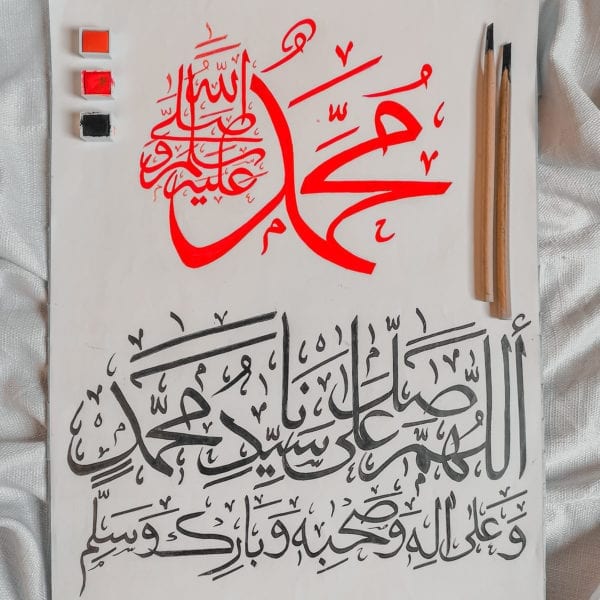 مُحَمَّدٌ صَلَّى اللهُ عَلَيْهِ وَسَلَّمَ
أَللّٰهُمَّ صَلِّ عَلَى سَيِّدِنَا مُحَمَّدٍ
وَعَلَى اٰلِهِ وَصَحْبِهِ وَبَارِكْ وَسَلِّمْ